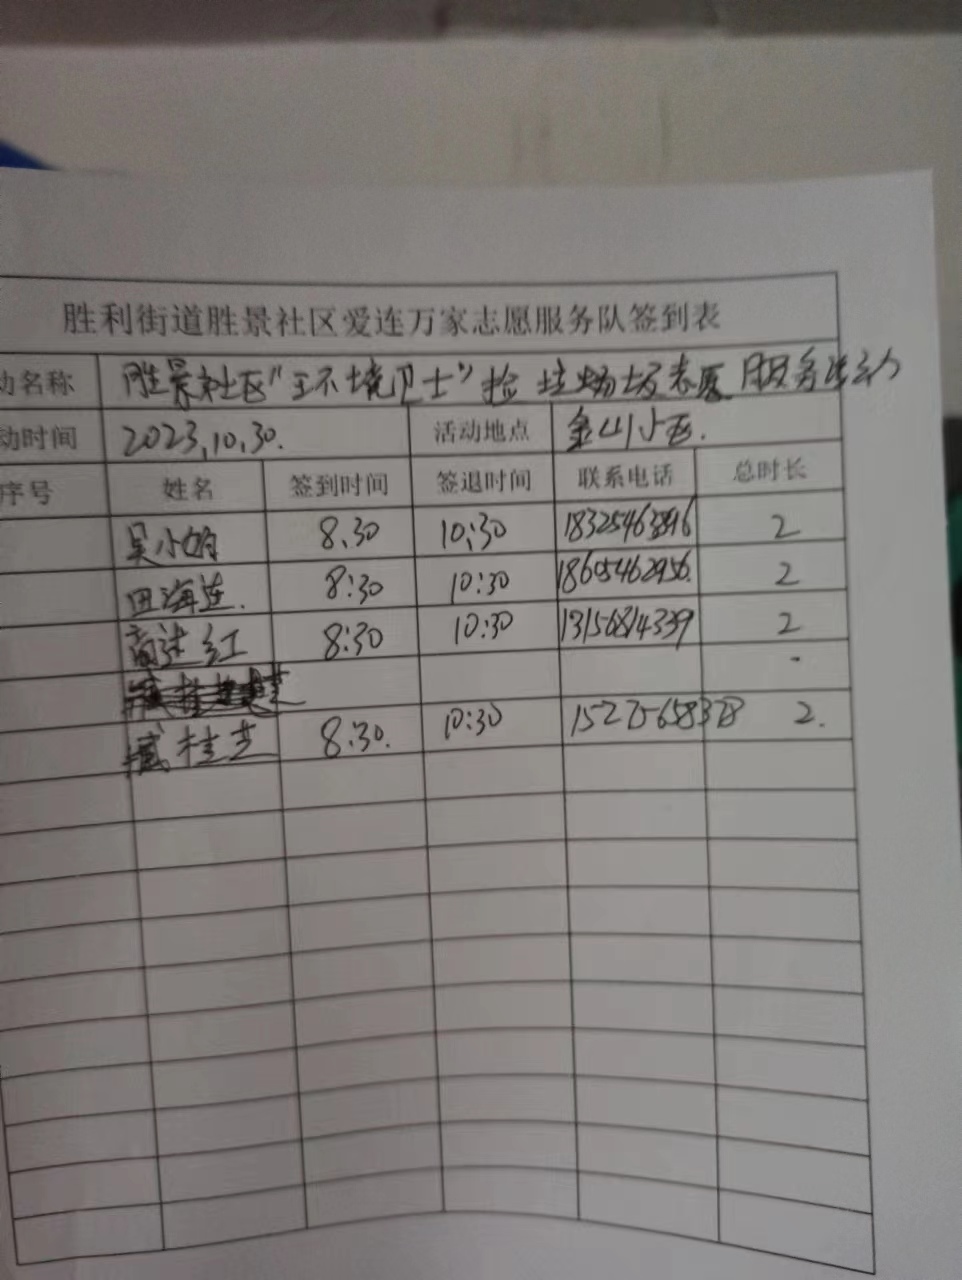 胜利街道胜景社区爱连万家志愿服务队签到表
动名称 胜景社区"环境卫士"捡垃圾志愿服务活动
动时间 2023,10,30. 活动地点 金山小区.
序号 姓名 签到时间 签退时间 联系电话 总时长
吴小 8:30 10:30 2
田海连. 8:30 10:30 18605462956. 2
商进红 8:30 10:30 13156814339 2
臧桂芝 8:30. 10:30 2.